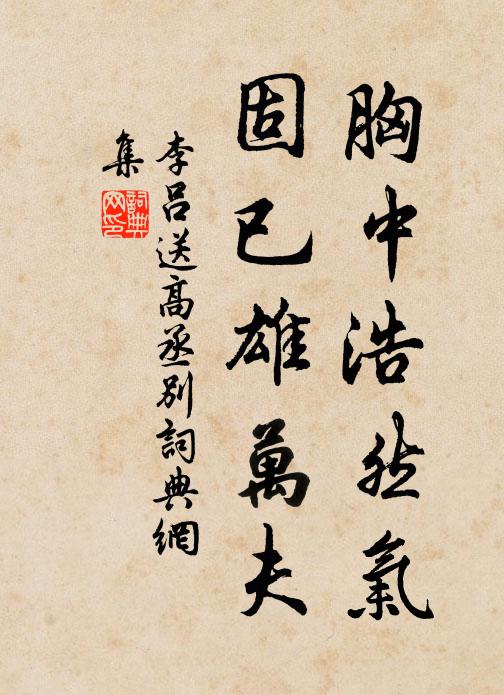 胸中浩然氣
固已雄萬夫
李呂送高丞別詞典網
集
詞典
网印